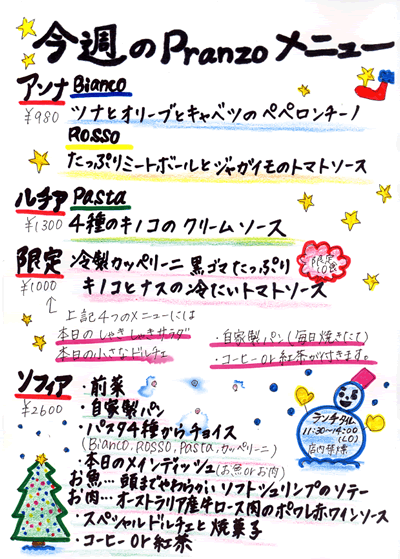 今週のPranzoメニュー
アンナ Bianco
¥980 ツナとオリーブとキャベツのペペロンチーノ
Rosso
たっぷりミートボールとジャガイモのトマトソース
ルチア Pasta
¥1300 4種のキノコのクリームソース
限定 冷製カッペリーニ 黒ゴマたっぷり
限定10食
¥1000 キノコとナスの冷たいトマトソース
上記4つのメニューには
本日のしゃきしゃきサラダ
本日の小さなドルチェ
・自家製パン(毎日焼きたて)
・コーヒーor紅茶が付きます。
ソフィア ・前菜
¥2600 ・自家製パン
・パスタ4種からチョイス
(Bianco, Rosso, Pasta, カッペリーニ)
・本日のメインディッシュ(お魚orお肉)
お魚…頭までやわらかい ソフトシュリンプのソテー
お肉…オーストラリア産牛ロース肉のポワレ赤ワインソース
・スペシャルドルチェと焼菓子
・コーヒーor紅茶
ランチタイム
11:30~14:00
(LO)